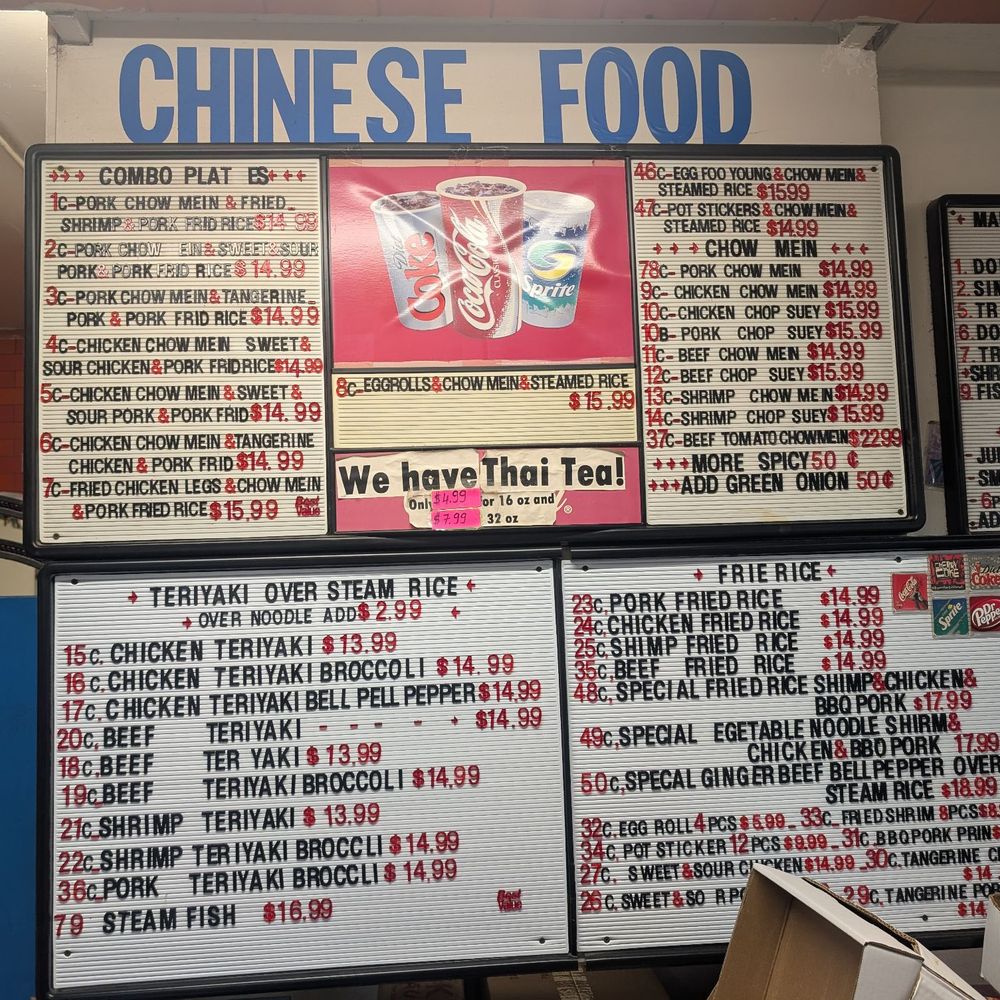 CHINESE FOOD
→→ COMBO PLAT ES ←←
1C-PORK CHOW MEIN & FRIED
SHRIMP & PORK FRID RICE $14 99
2C-PORK CHOW EIN & SWEET & SOUR
PORK & PORK FRID RICE $14.99
3C-PORK CHOW MEIN & TANGERINE
PORK & PORK FRID RICE $14.99
4C-CHICKEN CHOW MEIN SWEET &
SOUR CHICKEN & PORK FRID RICE $14.99
5C-CHICKEN CHOW MEIN & SWEET &
SOUR PORK & PORK FRID $14.99
6C-CHICKEN CHOW MEIN & TANGERINE
CHICKEN & PORK FRID $14.99
7C-FRIED CHICKEN LEGS & CHOW MEIN
& PORK FRIED RICE $15.99 Best Value
Diet Coke
Coca-Cola CLASSIC
Sprite
8C-EGGROLLS & CHOW MEIN & STEAMED RICE
$15.99
We have Thai Tea!
Only $4.99 for 16 oz and
$7.99 32 oz
46C-EGG FOO YOUNG & CHOW MEIN &
STEAMED RICE $1599
47C-POT STICKERS & CHOW MEIN &
STEAMED RICE $14.99
→→→ CHOW MEIN ←←←
78C- PORK CHOW MEIN $14.99
9C- CHICKEN CHOW MEIN $14.99
10C- CHICKEN CHOP SUEY $15.99
10B- PORK CHOP SUEY $15.99
11C- BEEF CHOW MEIN $14.99
12C- BEEF CHOP SUEY $15.99
13C-SHRIMP CHOW MEIN $14.99
14C-SHRIMP CHOP SUEY $15.99
37C-BEEF TOMATO CHOWMEIN $22.99
→→→MORE SPICY 50 ¢
→→→ADD GREEN ONION 50¢
→ TERIYAKI OVER STEAM RICE ←
→OVER NOODLE ADD $2.99 ←
15C. CHICKEN TERIYAKI $13.99
16C. CHICKEN TERIYAKI BROCCOLI $14.99
17C. CHICKEN TERIYAKI BELL PELL PEPPER $14,99
20C. BEEF TERIYAKI - - - - → $14.99
18C. BEEF TER YAKI $13.99
19C. BEEF TERIYAKI BROCCOLI $14,99
21C. SHRIMP TERIYAKI $13.99
22C. SHRIMP TERIYAKI BROCCLI $14.99
36C. PORK TERIYAKI BROCCLI $14,99
79 STEAM FISH $16,99 Best Value
→ FRIE RICE ←
23C, PORK FRIED RICE $14.99
24C, CHICKEN FRIED RICE $14.99
25C, SHIMP FRIED RICE $14.99
35C, BEEF FRIED RICE $14.99
48C, SPECIAL FRIED RICE SHIMP & CHICKEN &
BBQ PORK $17.99
49C, SPECIAL EGETABLE NOODLE SHIRM &
CHICKEN & BBQ PORK 17.99
50C, SPECAL GINGER BEEF BELL PEPPER OVER
STEAM RICE $18.99
32C. EGG ROLL 4 PCS $6.99 - 33C. FRIED SHRIM 8PCS $8.
34C. POT STICKER 12 PCS $9.99 - 31C. BBQ PORK PRIN $
27C, SWEET & SOUR CHICKEN $14.99 - 30C. TANGERINE C
$14
26C. SWEET & SO R P 29C, TANGERINE POR
$14
Coca-Cola
Diet Coke
Sprite
Dr Pepper
MA
1. DO
2. SI
5. TR
6. DO
7. TR
+SHR
9. FIS
-JU
-SM
-6
-AD